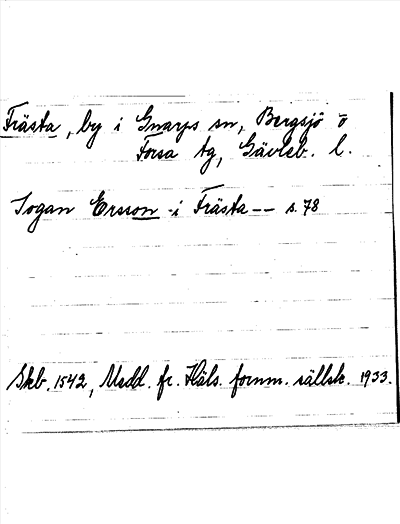 Frästa, by i Gnarps sn, Bergsjö o
Forsa tg, Gävleb. l.
Jogan Ersson i Frästa -- s. 78
Skb. 1542, Medd. fr. Häls. fornm. sällsk. 1933.